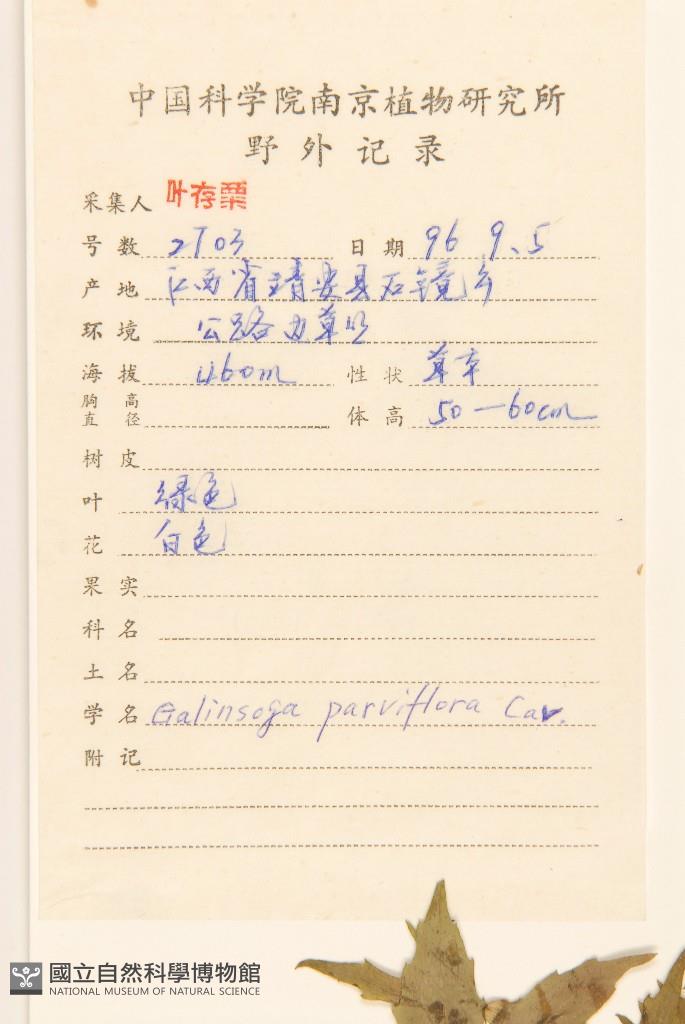 中国科学院南京植物研究所
野外记录
采集人 叶存粟
号数 2703 日期 96 9.5
产地 江西省靖安县石镜乡
环境 公路边草
海拔 460m 性状 草本
胸高直径 体高 50—60cm
树皮
叶 绿色
花 白色
果实
科名
土名
学名 Galinsoga parviflora Cav.
附记
國立自然科學博物館
NATIONAL MUSEUM OF NATURAL SCIENCE